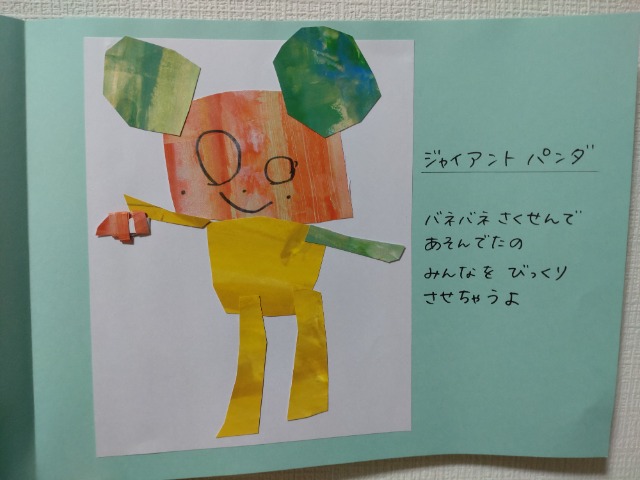 ジャイアント パンダ
バネバネ さくせんで
あそんでたの
みんなを びっくり
させちゃうよ